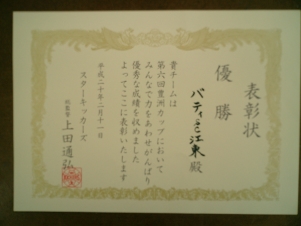 表彰状
優勝
バディ江東殿
貴チームは
第六回豊洲カップにおいて
みんなで力をあわせがんばり
優秀な成績を収めました
よってここに表彰いたします
平成二十年二月十一日
スターキッカーズ
上田通弘